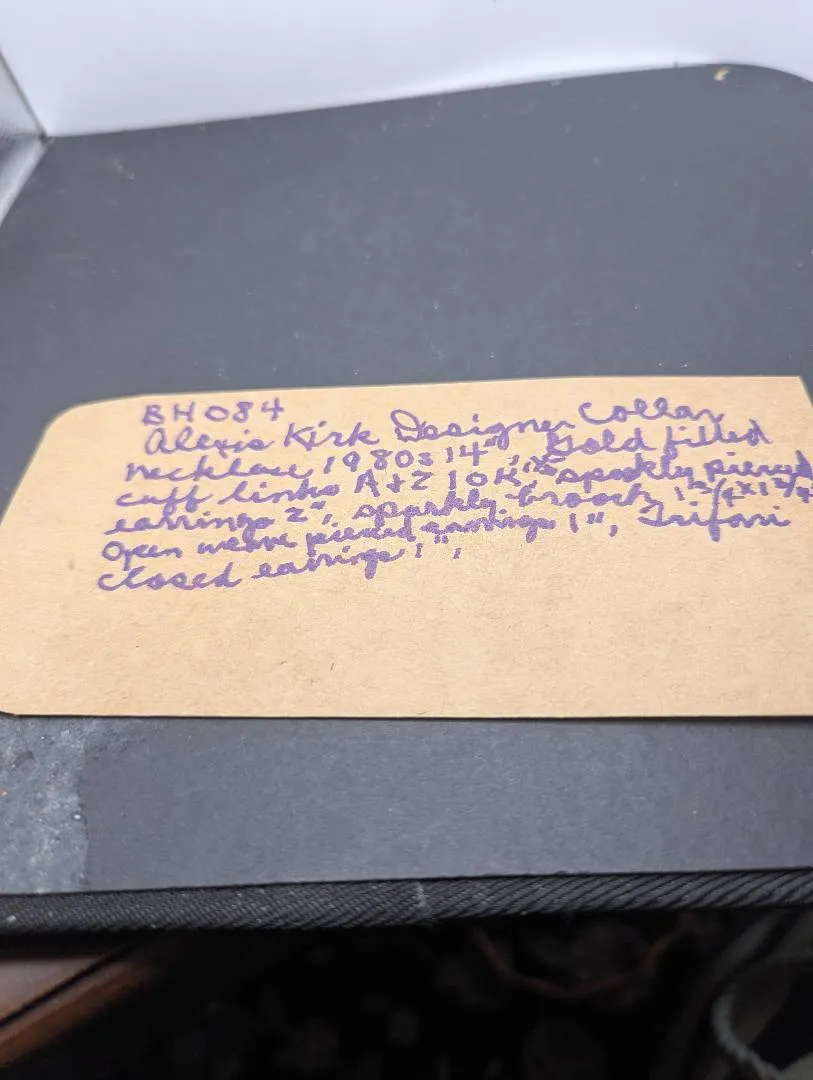 BH084
Alexis Kirk Designer Collar
necklace 1980s 14", Gold filled
cuff links A+Z 10K, sparkly pierced
earrings 2", sparkly brooch 1 3/4 x 1 3/4
Open weave pierced earrings 1", Trifari
closed earrings 1",